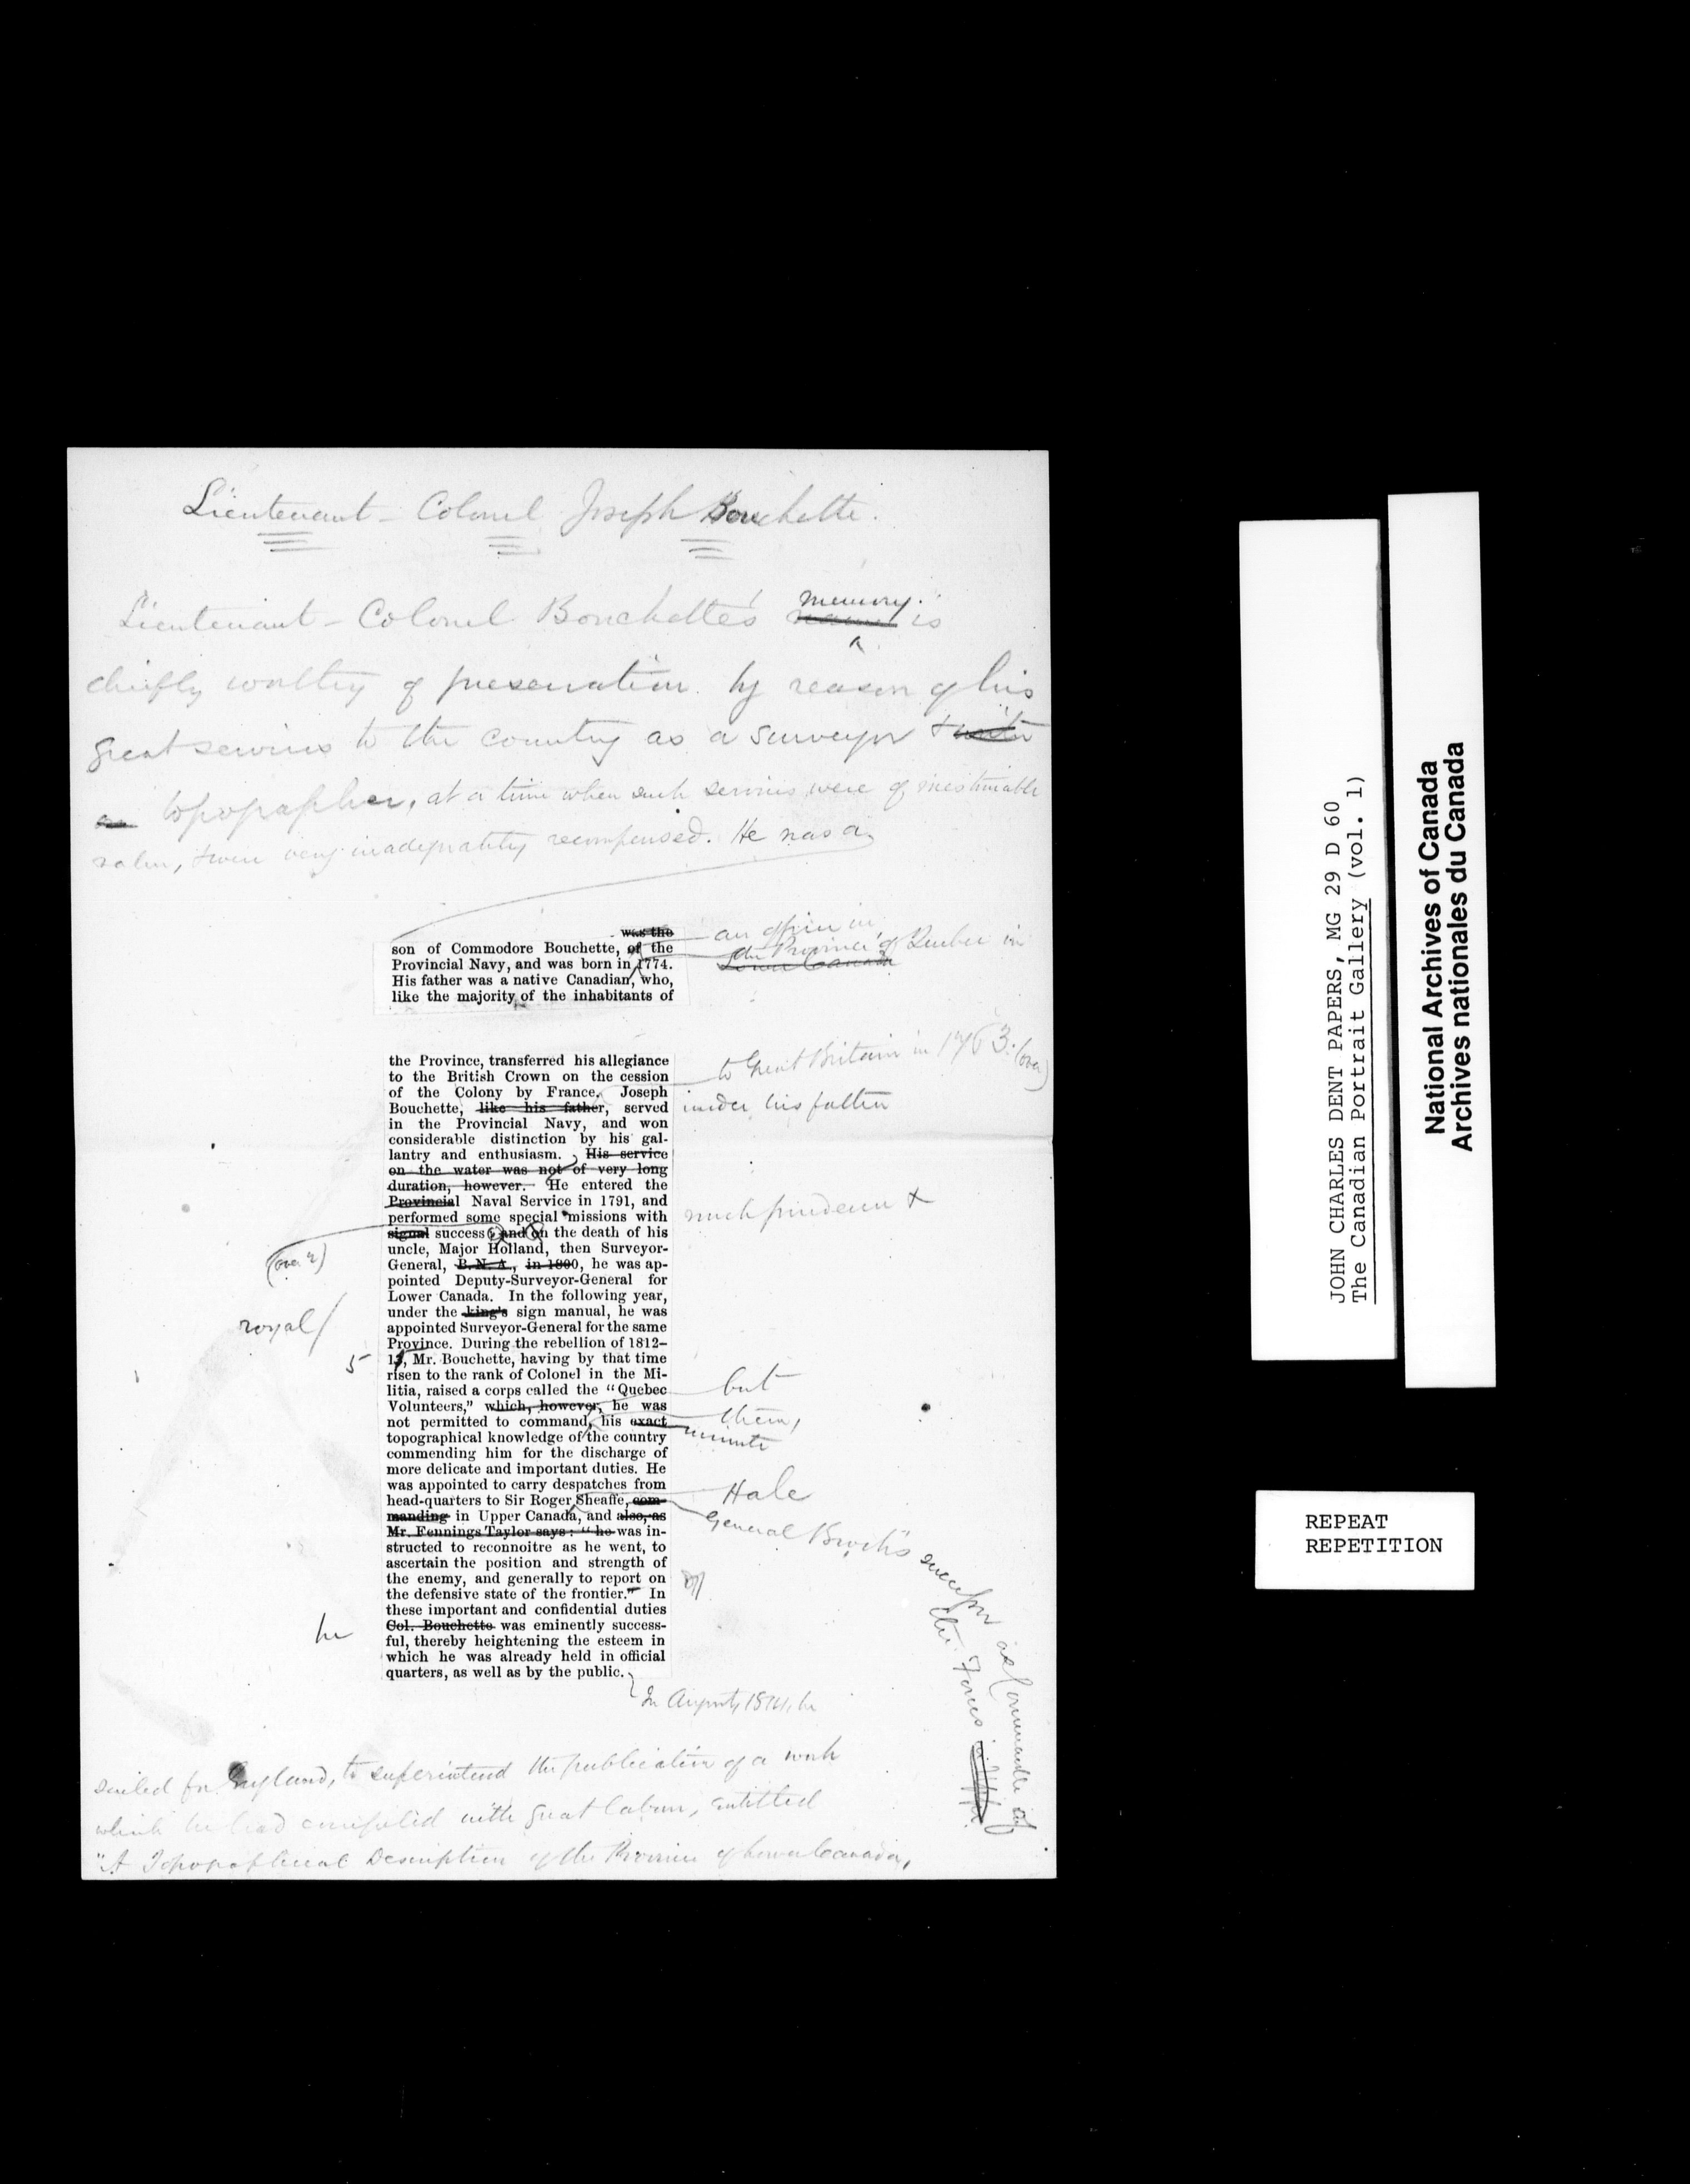 Lieutenant-Colonel Joseph Bouchette.
Lieutenant-Colonel Bouchette's name memory is
chiefly worthy of preservation by reason of his
great services to the country as a surveyor &
topographer, at a time when such services were of inestimable
value, & were very inadequately recompensed. He was a
was the
son of Commodore Bouchette, of the
Provincial Navy, and was born in 1774.
His father was a native Canadian, who,
like the majority of the inhabitants of
an officer in
the Province of Quebec in
Lower Canada
the Province, transferred his allegiance
to the British Crown on the cession
of the Colony by France. Joseph
Bouchette, like his father, served
in the Provincial Navy, and won
considerable distinction by his gal-
lantry and enthusiasm. His service
on the water was not of very long
duration, however. He entered the
Provincial Naval Service in 1791, and
performed some special missions with
signal success; and on the death of his
uncle, Major Holland, then Surveyor-
General, B. N. A., in 1800, he was ap-
pointed Deputy-Surveyor-General for
Lower Canada. In the following year,
under the king's sign manual, he was
appointed Surveyor-General for the same
Province. During the rebellion of 1812-
13, Mr. Bouchette, having by that time
risen to the rank of Colonel in the Mi-
litia, raised a corps called the "Quebec
Volunteers," which, however, he was
not permitted to command, his exact
topographical knowledge of the country
commending him for the discharge of
more delicate and important duties. He
was appointed to carry despatches from
head-quarters to Sir Roger Sheaffe, com-
manding in Upper Canada, and also, as
Mr. Fennings Taylor says: "he was in-
structed to reconnoitre as he went, to
ascertain the position and strength of
the enemy, and generally to report on
the defensive state of the frontier." In
these important and confidential duties
Col. Bouchette was eminently success-
ful, thereby heightening the esteem in
which he was already held in official
quarters, as well as by the public.
to Great Britain in 1763. (over)
under his father
much prudence &
(over 2)
royal/
5
but
them,
minute
Hale
General Brock's successor as Commander of
the Forces
he
In August, 1814, he
sailed for England, to superintend the publication of a work
which he had compiled with great labour, entitled
"A Topographical Description of the Province of Lower Canada,
JOHN CHARLES DENT PAPERS, MG 29 D 60
The Canadian Portrait Gallery (vol. 1)
National Archives of Canada
Archives nationales du Canada
REPEAT
REPETITION